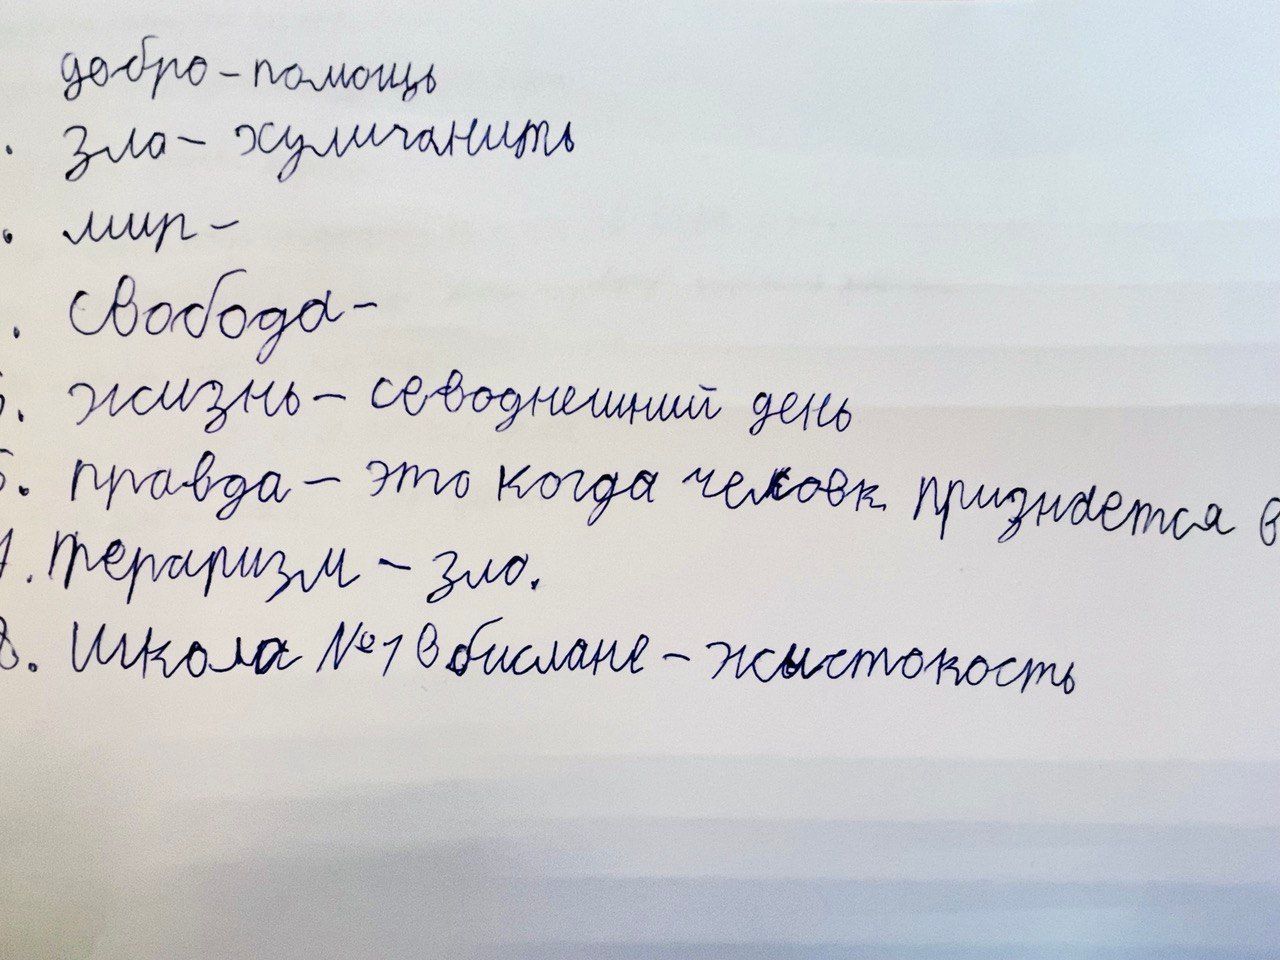 добро - помощь
. зла - хуличанить
. мир -
. Свобода -
5. жизнь - севоднешний день
6. правда - это когда человк признается в
7. Тераризм - зло.
8. Школа №1 в бислане - жыстокость